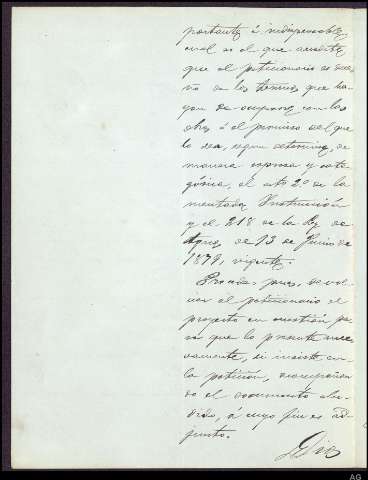 portante é indispensable
cual es el que acredite
que el peticionario es due-
ño de los terrenos que ha-
yan de ocuparse con las
obras ó el permiso del que
lo sea, segun determina, de
manera espresa y cate-
górica, el artº 2º de la
mentada Instrucción
y el 218 de la Ley de
Aguas, de 13 de Junio de
1879, vigente.
Procede, pues, devol-
ver al peticionario el
proyecto en cuestión pa-
ra que lo presente nueva-
vamente, si insiste en
la petición, acompañan-
do el documento alu-
dido, á cuyo fin es ad-
junto.
AG